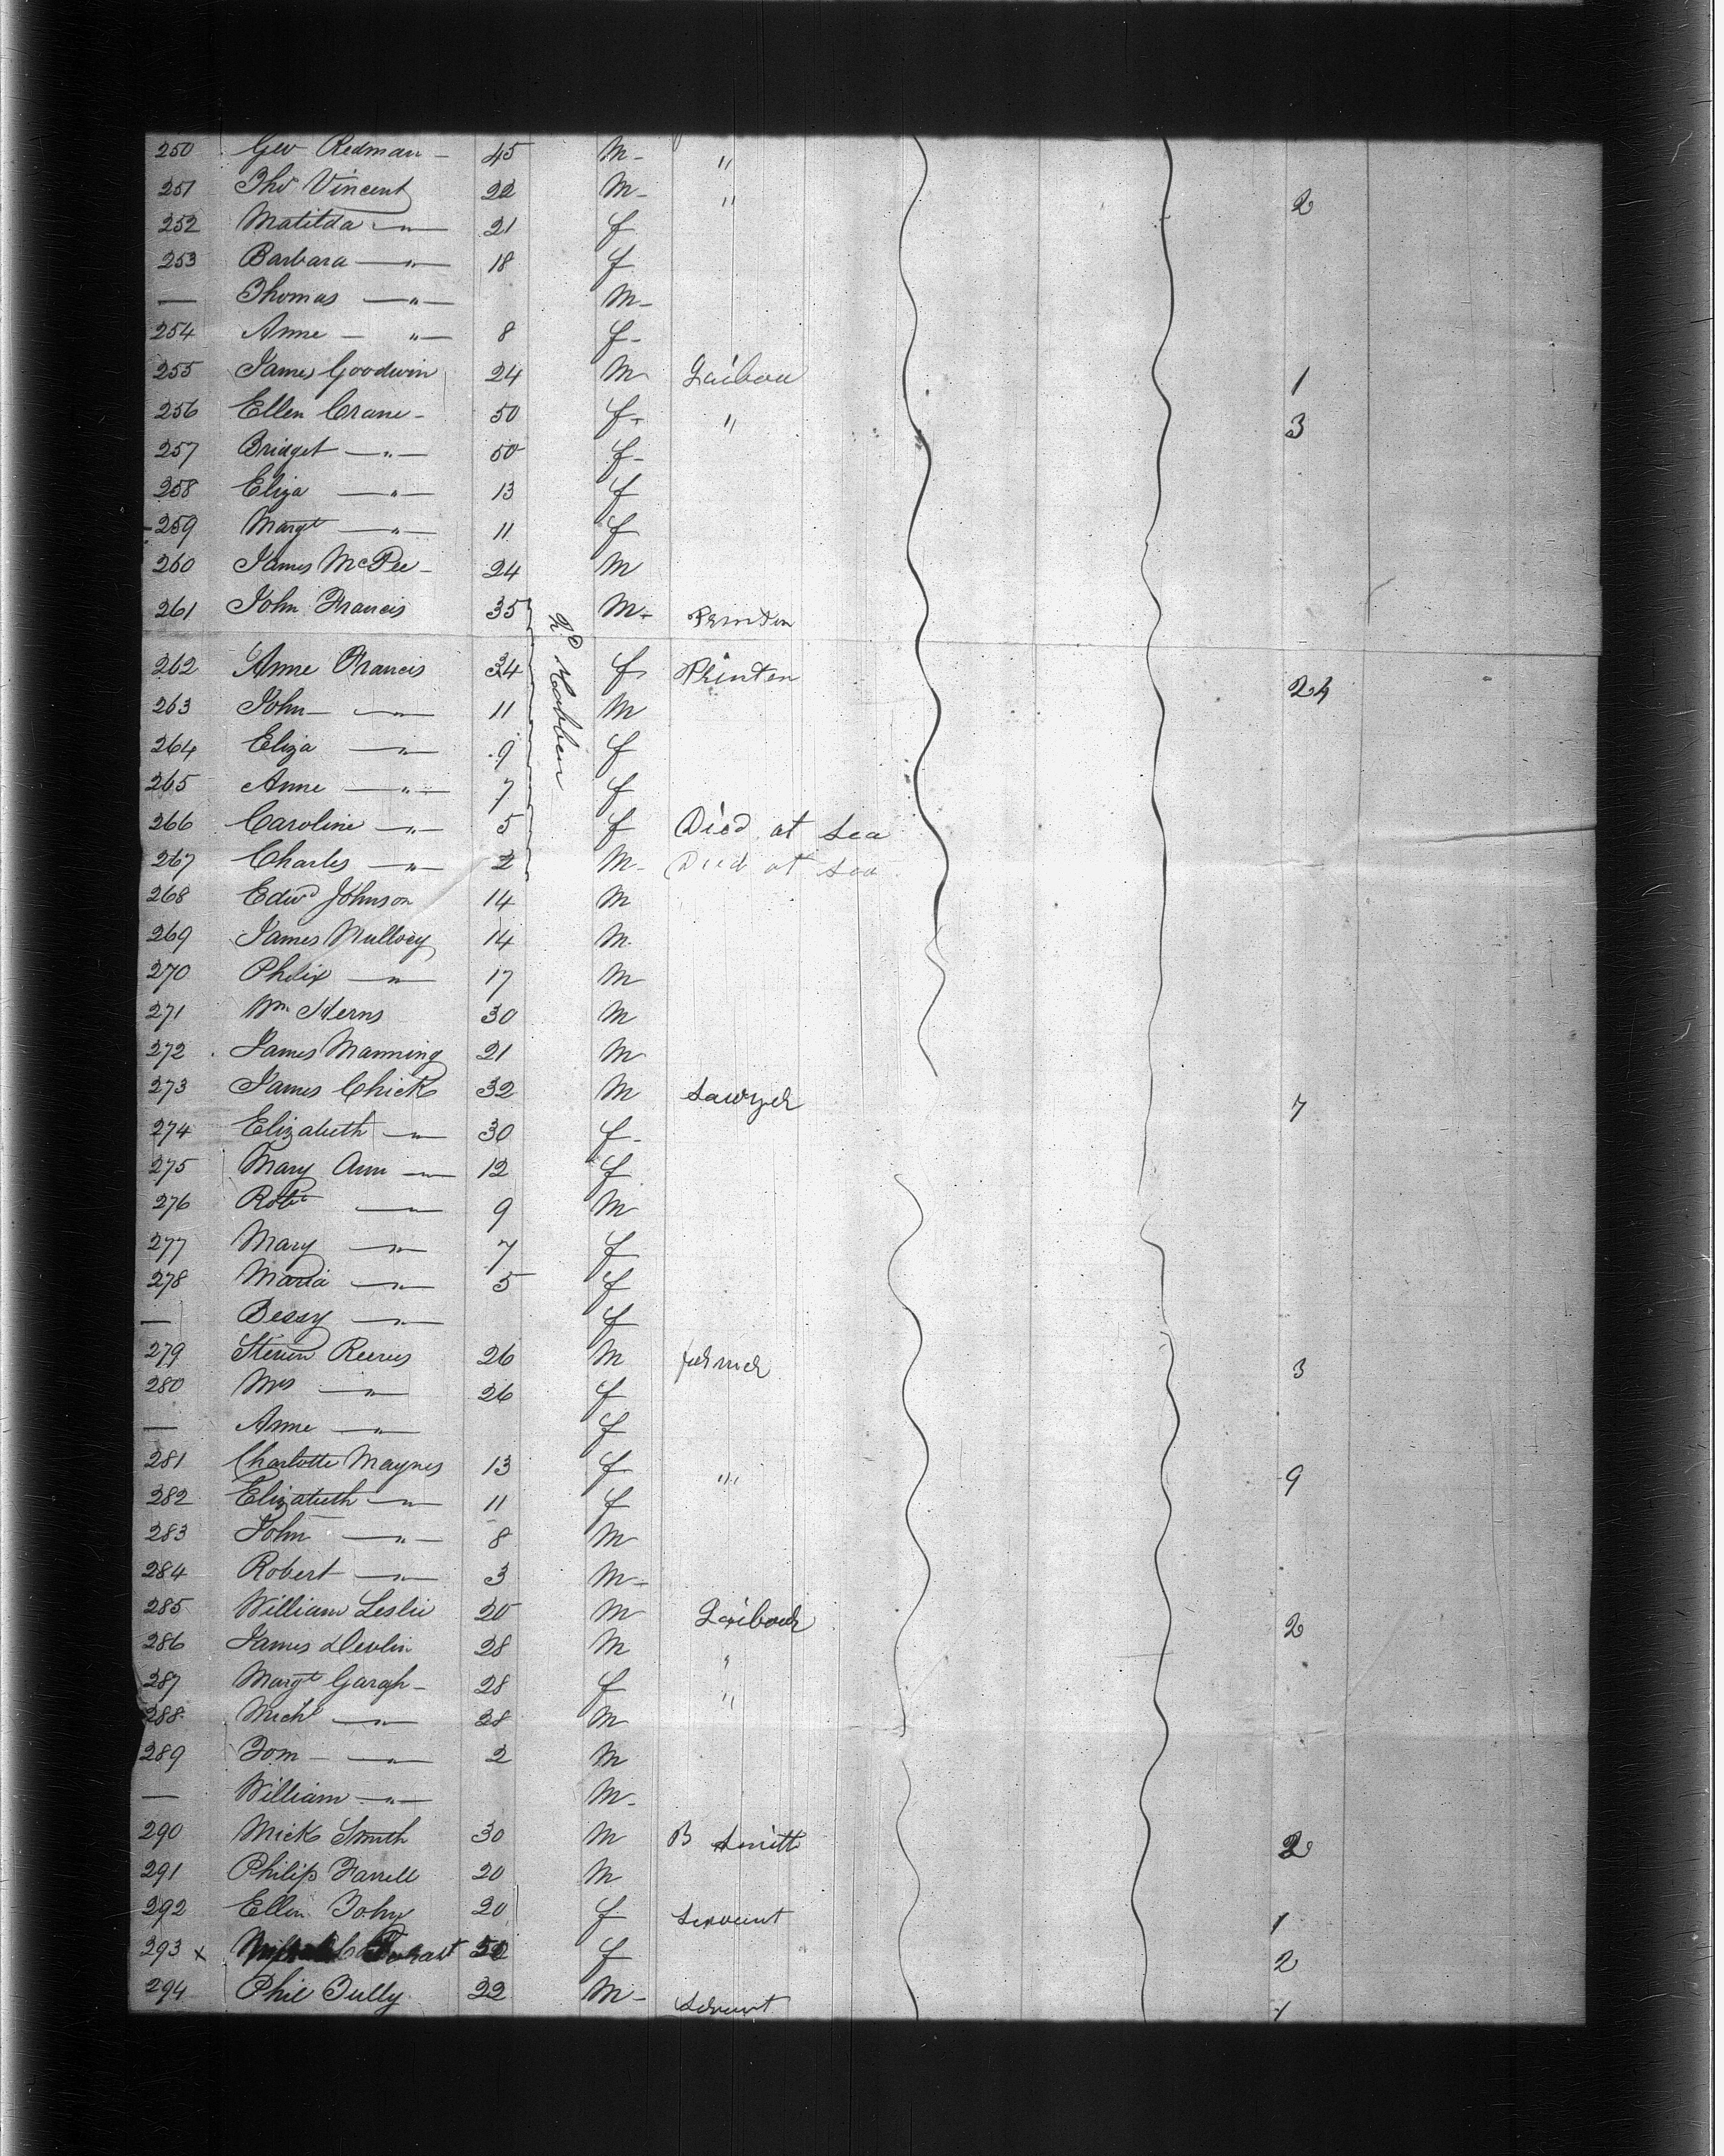 250 Geo Redman - 45 M - "
251 Tho Vincent 22 M - " 2
252 Matilda — " — 21 f
253 Barbara — " — 18 f
— Thomas — " — M -
254 Anne — " — 8 f -
255 James Goodwin 24 M 1
256 Ellen Crane - 50 f - " 3
257 Bridget — " — 50 f -
258 Eliza — " — 13 f
259 Margt — " — 11 f
260 James McPee - 24 M
261 John Francis 35 M -
2D Cabben
262 Anne Francis 34 f Printer
263 John — " — 11 M
264 Eliza — " — 9 f
265 Anne — " — 7 f
266 Caroline — " — 5 f Died at sea
267 Charles — " — 2 M - Died at sea
268 Edwd Johnson 14 M
269 James 14 M
270 Phelix — " — 17 M
271 Wm 30 M
272 James Manning 21 M
273 James Chick 32 M Sawyer 7
274 Elizabeth — " — 30 f -
275 Mary Ann — " — 12 f
276 Robt — " — 9 M
277 Mary — " — 7 f
278 Maria — " — 5 f
— Bessy — " — f
279 Steven Reeves 26 M 3
280 Mrs — " — 26 f
— Anne — " — f
281 Charlotte Maynes 13 f " 9
282 Elizabeth — " — 11 f
283 John — " — 8 M
284 Robert — " — 3 M -
285 William Leslie 20 M 2
286 James Devlin 28 M "
287 Margt - 28 f "
288 Michl — " — 28 M
289 Tom — " — 2 M
— William — " — M -
290 Mick Smith 30 M B Smith 2
291 Philip Farrell 20 M
292 Ellen 20 f Servant 1
293 x f 2
294 Phil Tully 22 M - Servant 1